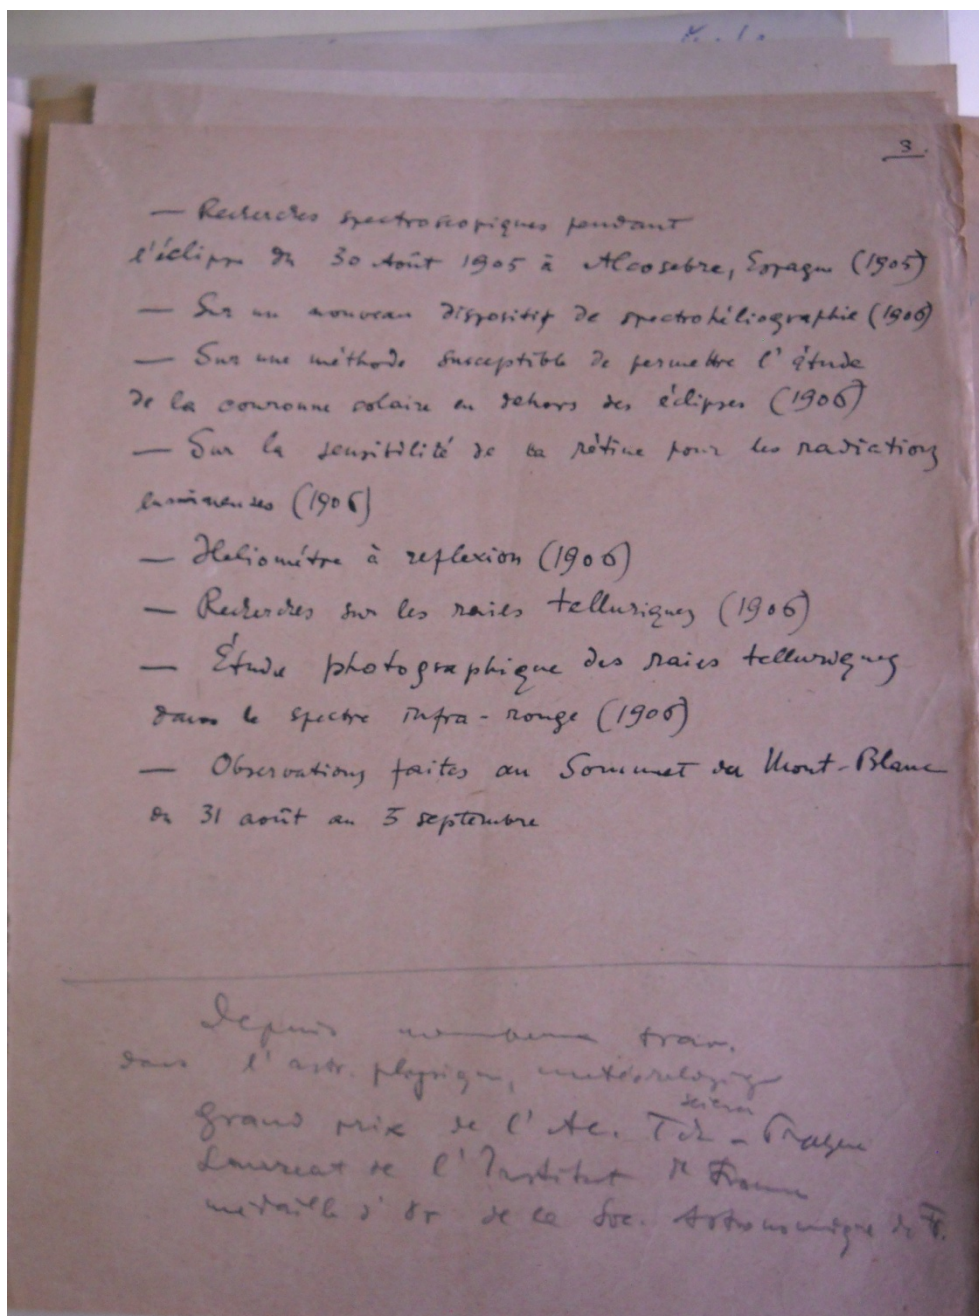 3.
— Recherches spectroscopiques pendant
l'éclipse du 30 Août 1905 à Alcosebre, Espagne (1905)
— Sur un nouveau dispositif de spectrohéliographie (1906)
— Sur une méthode susceptible de permettre l'étude
de la couronne solaire en dehors des éclipses (1906)
— Sur la sensibilité de la rétine pour les radiations
lumineuses (1906)
— Heliomètre à reflexion (1906)
— Recherches sur les raies telluriques (1906)
— Étude photographique des raies telluriques
dans le spectre infra-rouge (1906)
— Observations faites au Sommet du Mont-Blanc
du 31 août au 5 septembre
Depuis nombreux trav.
dans l'astr. physique, météorologique
scien
Grand prix de l'Ac. Tch - Prague
Laureat de l'Institut de France
médaille d'or de la Soc. Astronomique de Fr.